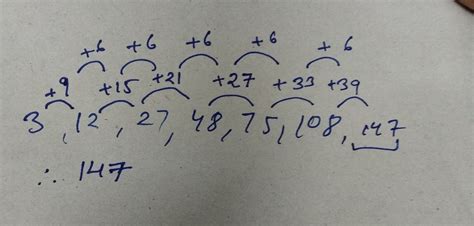 +6 +6 +6 +6 +6
+9 +15 +21 +27 +33 +39
3, 12, 27, 48, 75, 108, 147
∴ 147